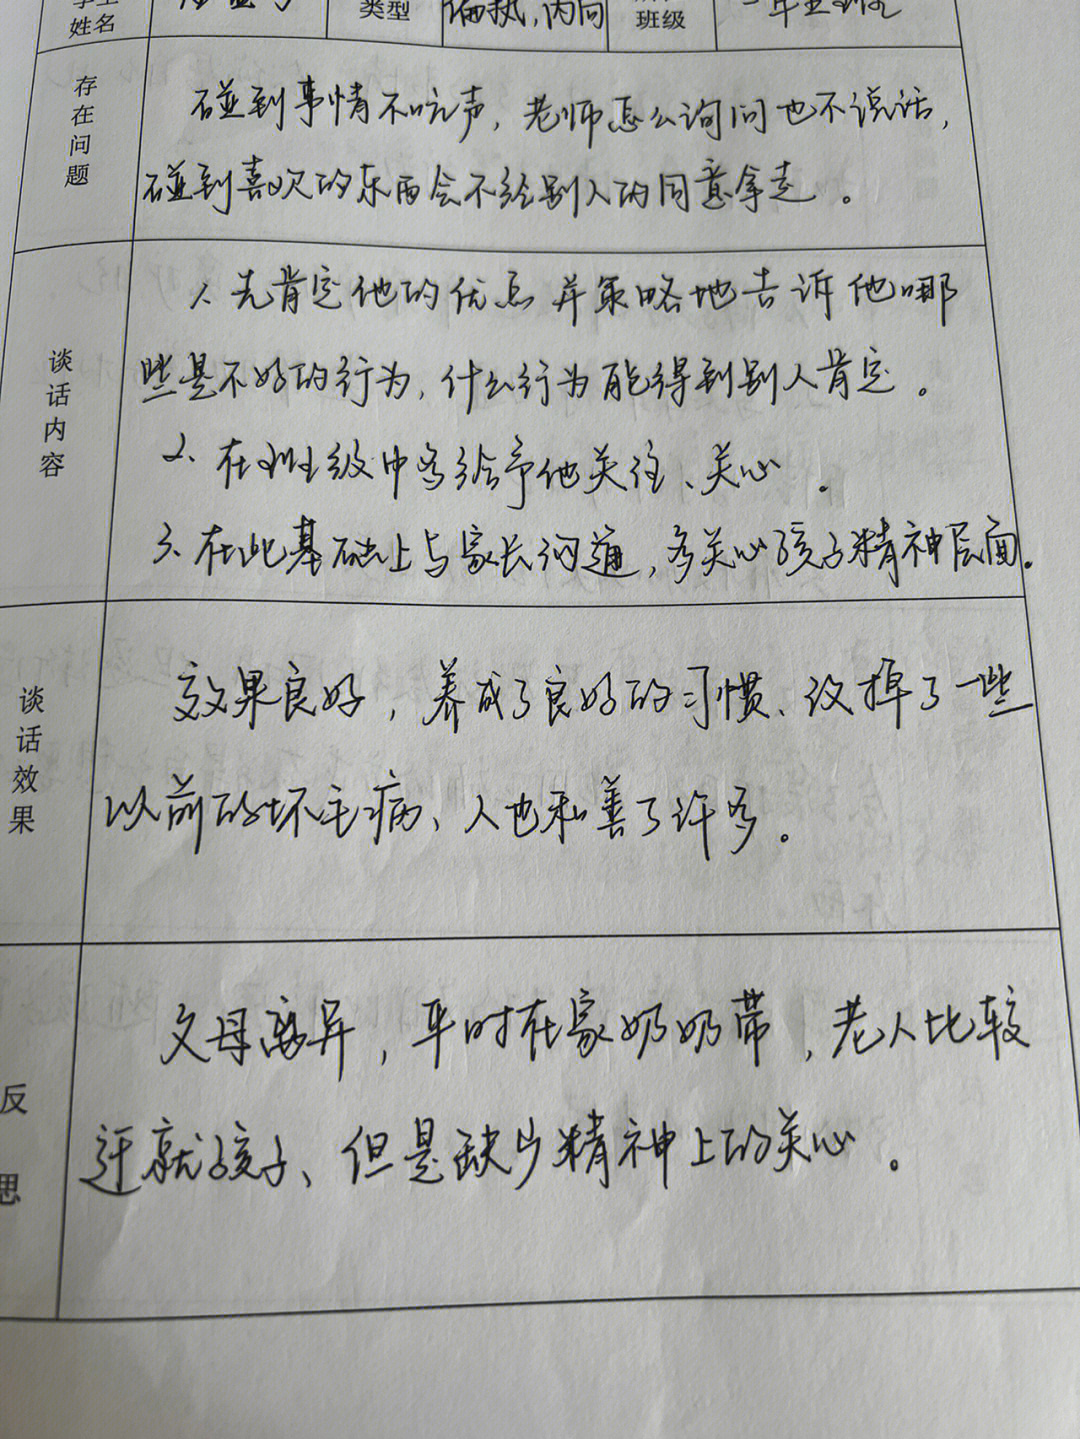 姓名
类型 偏执，内向
班级
存在问题
碰到事情不吭声，老师怎么询问也不说话，
碰到喜欢的东西会不经别人的同意拿走。
谈话内容
1、先肯定他的优点并策略地告诉他哪
些是不好的行为，什么行为能得到别人肯定。
2、在班级中多给予他关注、关心。
3、在此基础上与家长沟通，多关心孩子精神层面。
谈话效果
效果良好，养成了良好的习惯、改掉了一些
以前的坏毛病、人也和善了许多。
反思
父母离异，平时在家奶奶带，老人比较
迁就孩子、但是缺少精神上的关心。